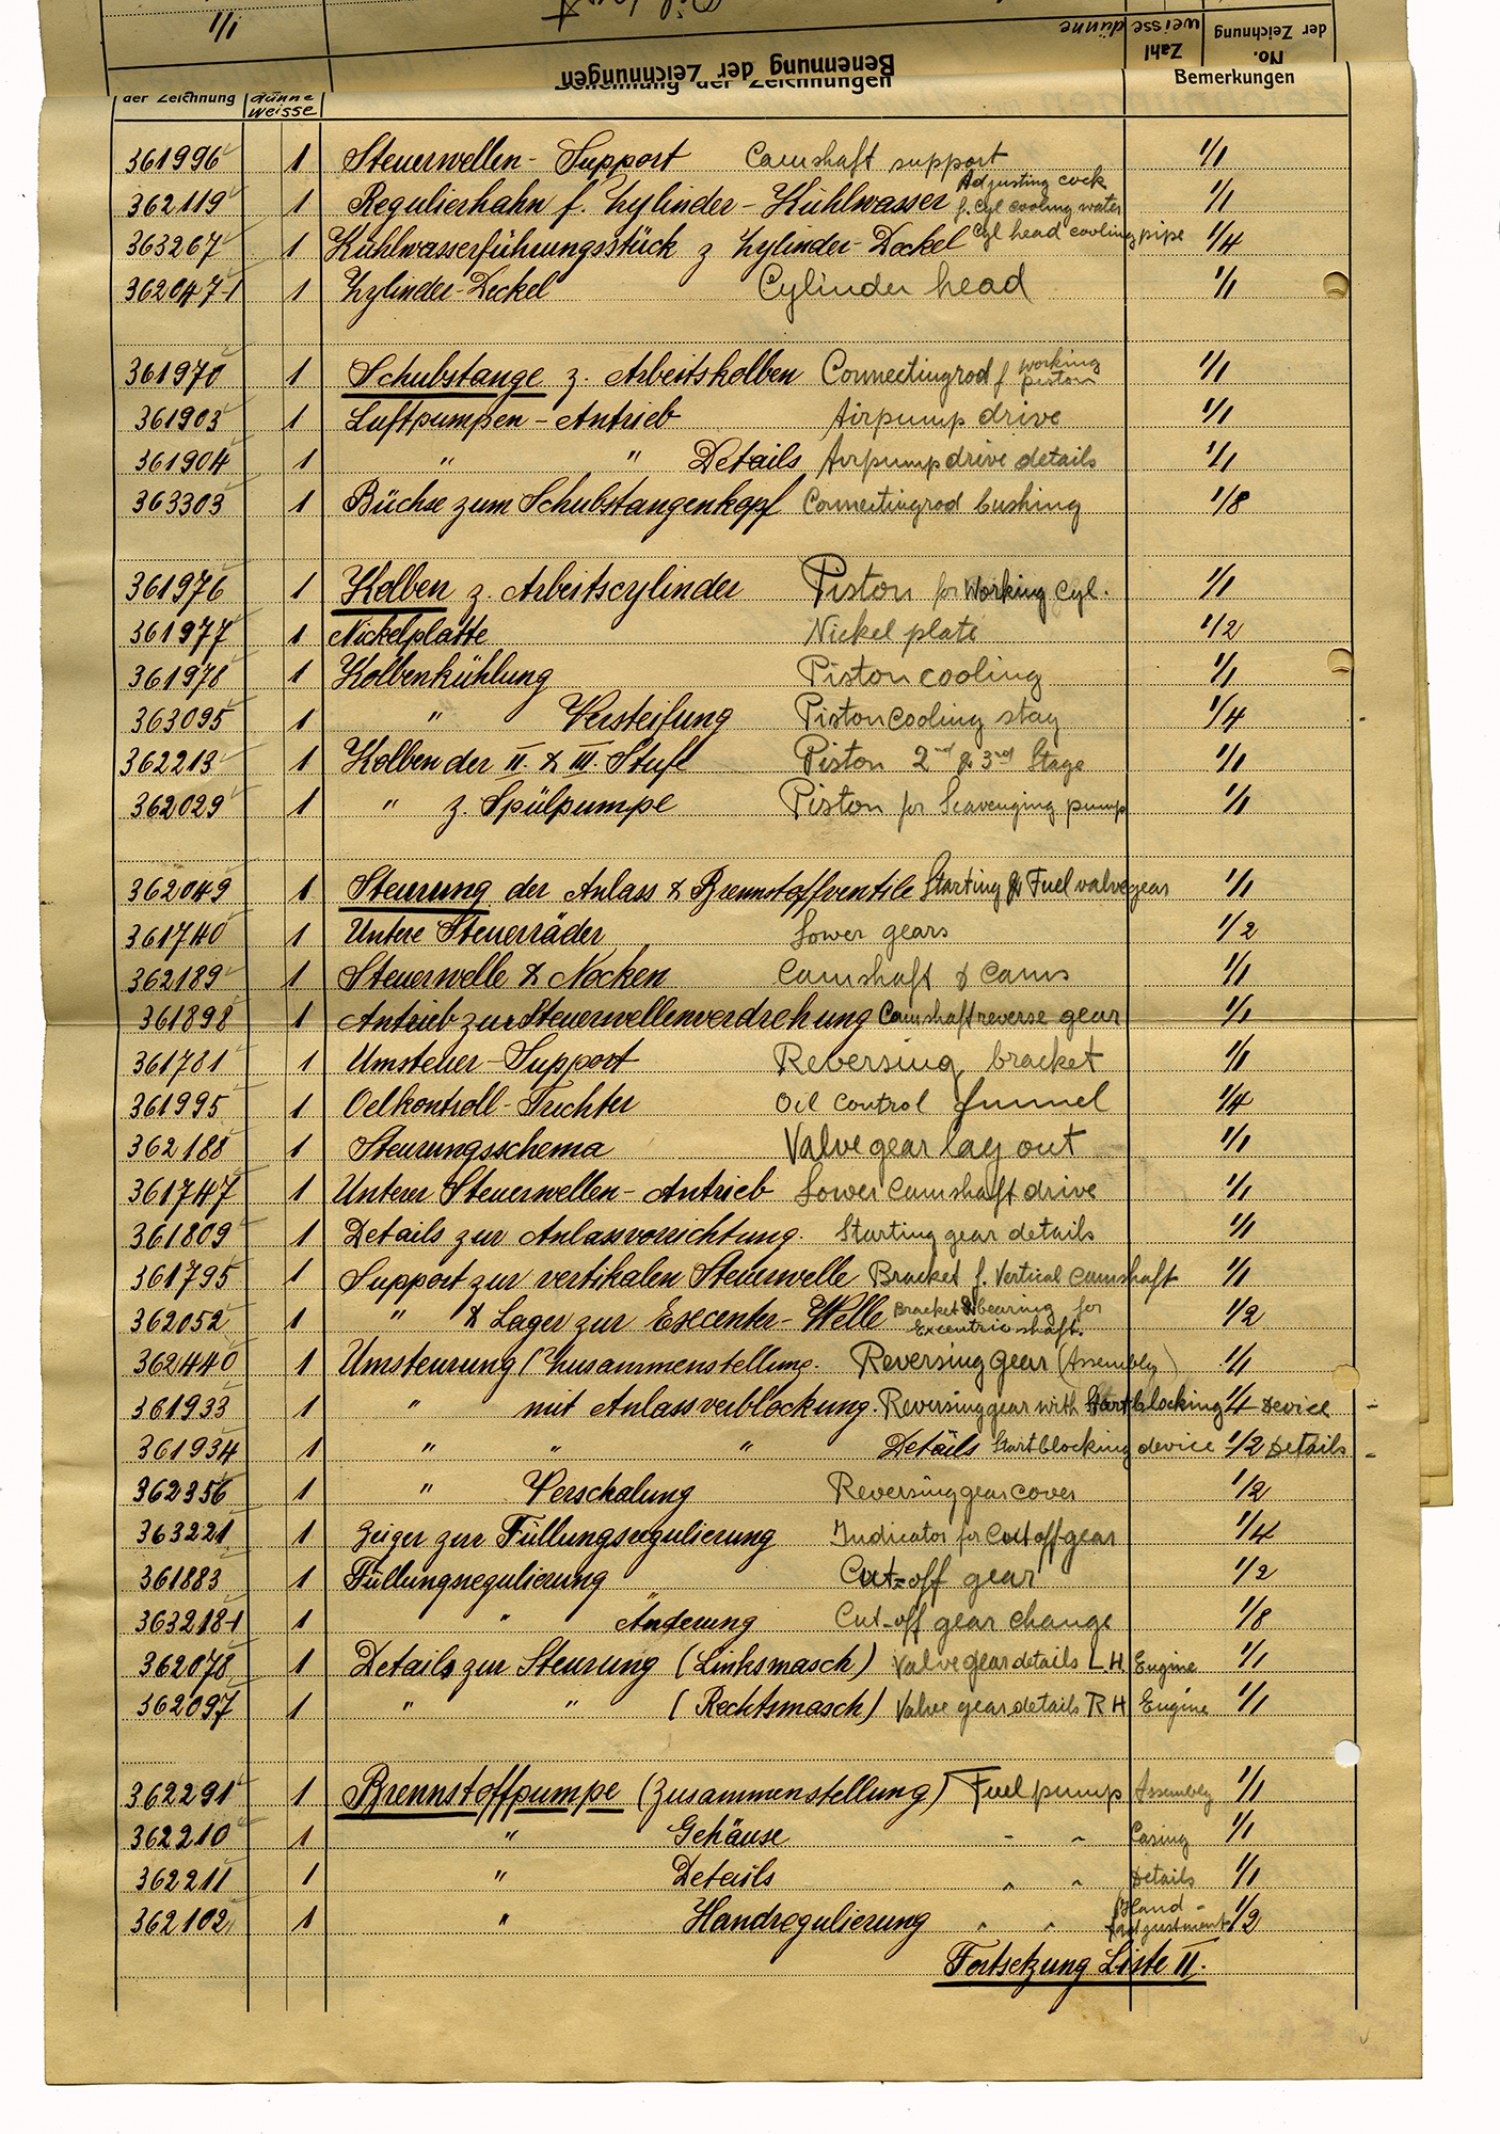 1/1
weisse dünne
Zahl
No.
der Zeichnung
Benennung der Zeichnungen
Bemerkungen
der Zeichnung dünne weisse Benennung der Zeichnungen
361996 1 Steuerwellen-Support Camshaft support 1/1
362119 1 Regulierhahn f. Zylinder-Kühlwasser Adjusting cock f. cyl cooling water 1/1
363267 1 Kühlwasserführungsstück z Zylinder-Deckel Cyl head cooling pipe 1/4
362047-1 1 Zylinder-Deckel Cylinder head 1/1
361970 1 Schubstange z. Arbeitskolben Connectingrod f working piston 1/1
361903 1 Luftpumpen-Antrieb Airpump drive 1/1
361904 1 " " Details Airpump drive details 1/1
363303 1 Büchse zum Schubstangenkopf Connectingrod bushing 1/8
361976 1 Kolben z. Arbeitscylinder Piston for Working Cyl. 1/1
361977 1 Nickelplatte Nickel plate 1/2
361978 1 Kolbenkühlung Piston cooling 1/1
363095 1 " Versteifung Piston cooling stay 1/4
362213 1 Kolben der II. & III. Stufe Piston 2nd & 3rd Stage 1/1
362029 1 " z. Spülpumpe Piston for Scavenging pump 1/1
362049 1 Steurung der Anlass & Brennstoffventile Starting & Fuel valvegear 1/1
361740 1 Untere Steuerräder Lower gears 1/2
362189 1 Steuerwelle & Nocken Camshaft & Cams 1/1
361898 1 Antrieb zur Steuerwellenverdrehung Camshaft reverse gear 1/1
361781 1 Umsteuer-Support Reversing bracket 1/1
361995 1 Oelkontroll-Trichter Oil control funnel 1/4
362188 1 Steurungsschema Valve gear lay out 1/1
361747 1 Unterer Steuerwellen-Antrieb Lower Camshaft drive 1/1
361809 1 Details zur Anlassvorrichtung. Starting gear details 1/1
361795 1 Support zur vertikalen Steuerwelle Bracket f. Vertical camshaft 1/1
362052 1 " & Lager zur Excenter-Welle Bracket & bearing for Excentric shaft. 1/2
362440 1 Umsteurung (Zusammenstellung. Reversing gear (Assembly) 1/1
361933 1 " mit Anlassverblockung. Reversing gear with Start blocking 1/4 Device
361934 1 " " " Details Start blocking device 1/2 Details
362356 1 " Verschalung Reversing gear cover 1/2
363221 1 Zeiger zur Füllungsregulierung Indicator for Cut off gear 1/4
361883 1 Füllungsregulierung Cut-off gear 1/2
363218-1 1 " Änderung Cut-off gear change 1/8
362078 1 Details zur Steurung (Linksmasch) Valve gear details L H Engine 1/1
362097 1 " " (Rechtsmasch) Valve gear details R H Engine 1/1
362291 1 Brennstoffpumpe (Zusammenstellung) Fuel pump Assembly 1/1
362210 1 " Gehäuse " " Casing 1/1
362211 1 " Details " " Details 1/1
362102 1 " Handregulierung " " Hand-adjustment 1/2
Fortsetzung Liste II.